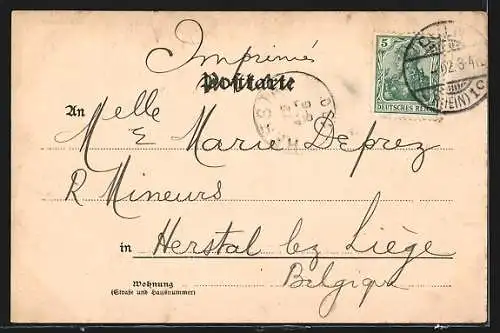 Imprimés
Postkarte
5
DEUTSCHES REICH
(RHEIN)
An Melle
E Marie Deprez
R Mineurs
in Herstal bz Liège
Belgique
Wohnung
(Straße und Hausnummer)